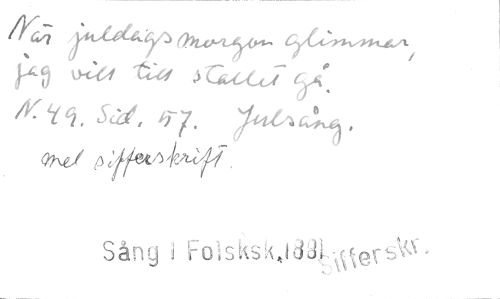 När juldagsmorgon glimmar,
jag vill till stallet gå.
N. 49. Sid. 57. Julsång.
mel sifferskrift.
Sång i Folsksk. 1881 Sifferskr.